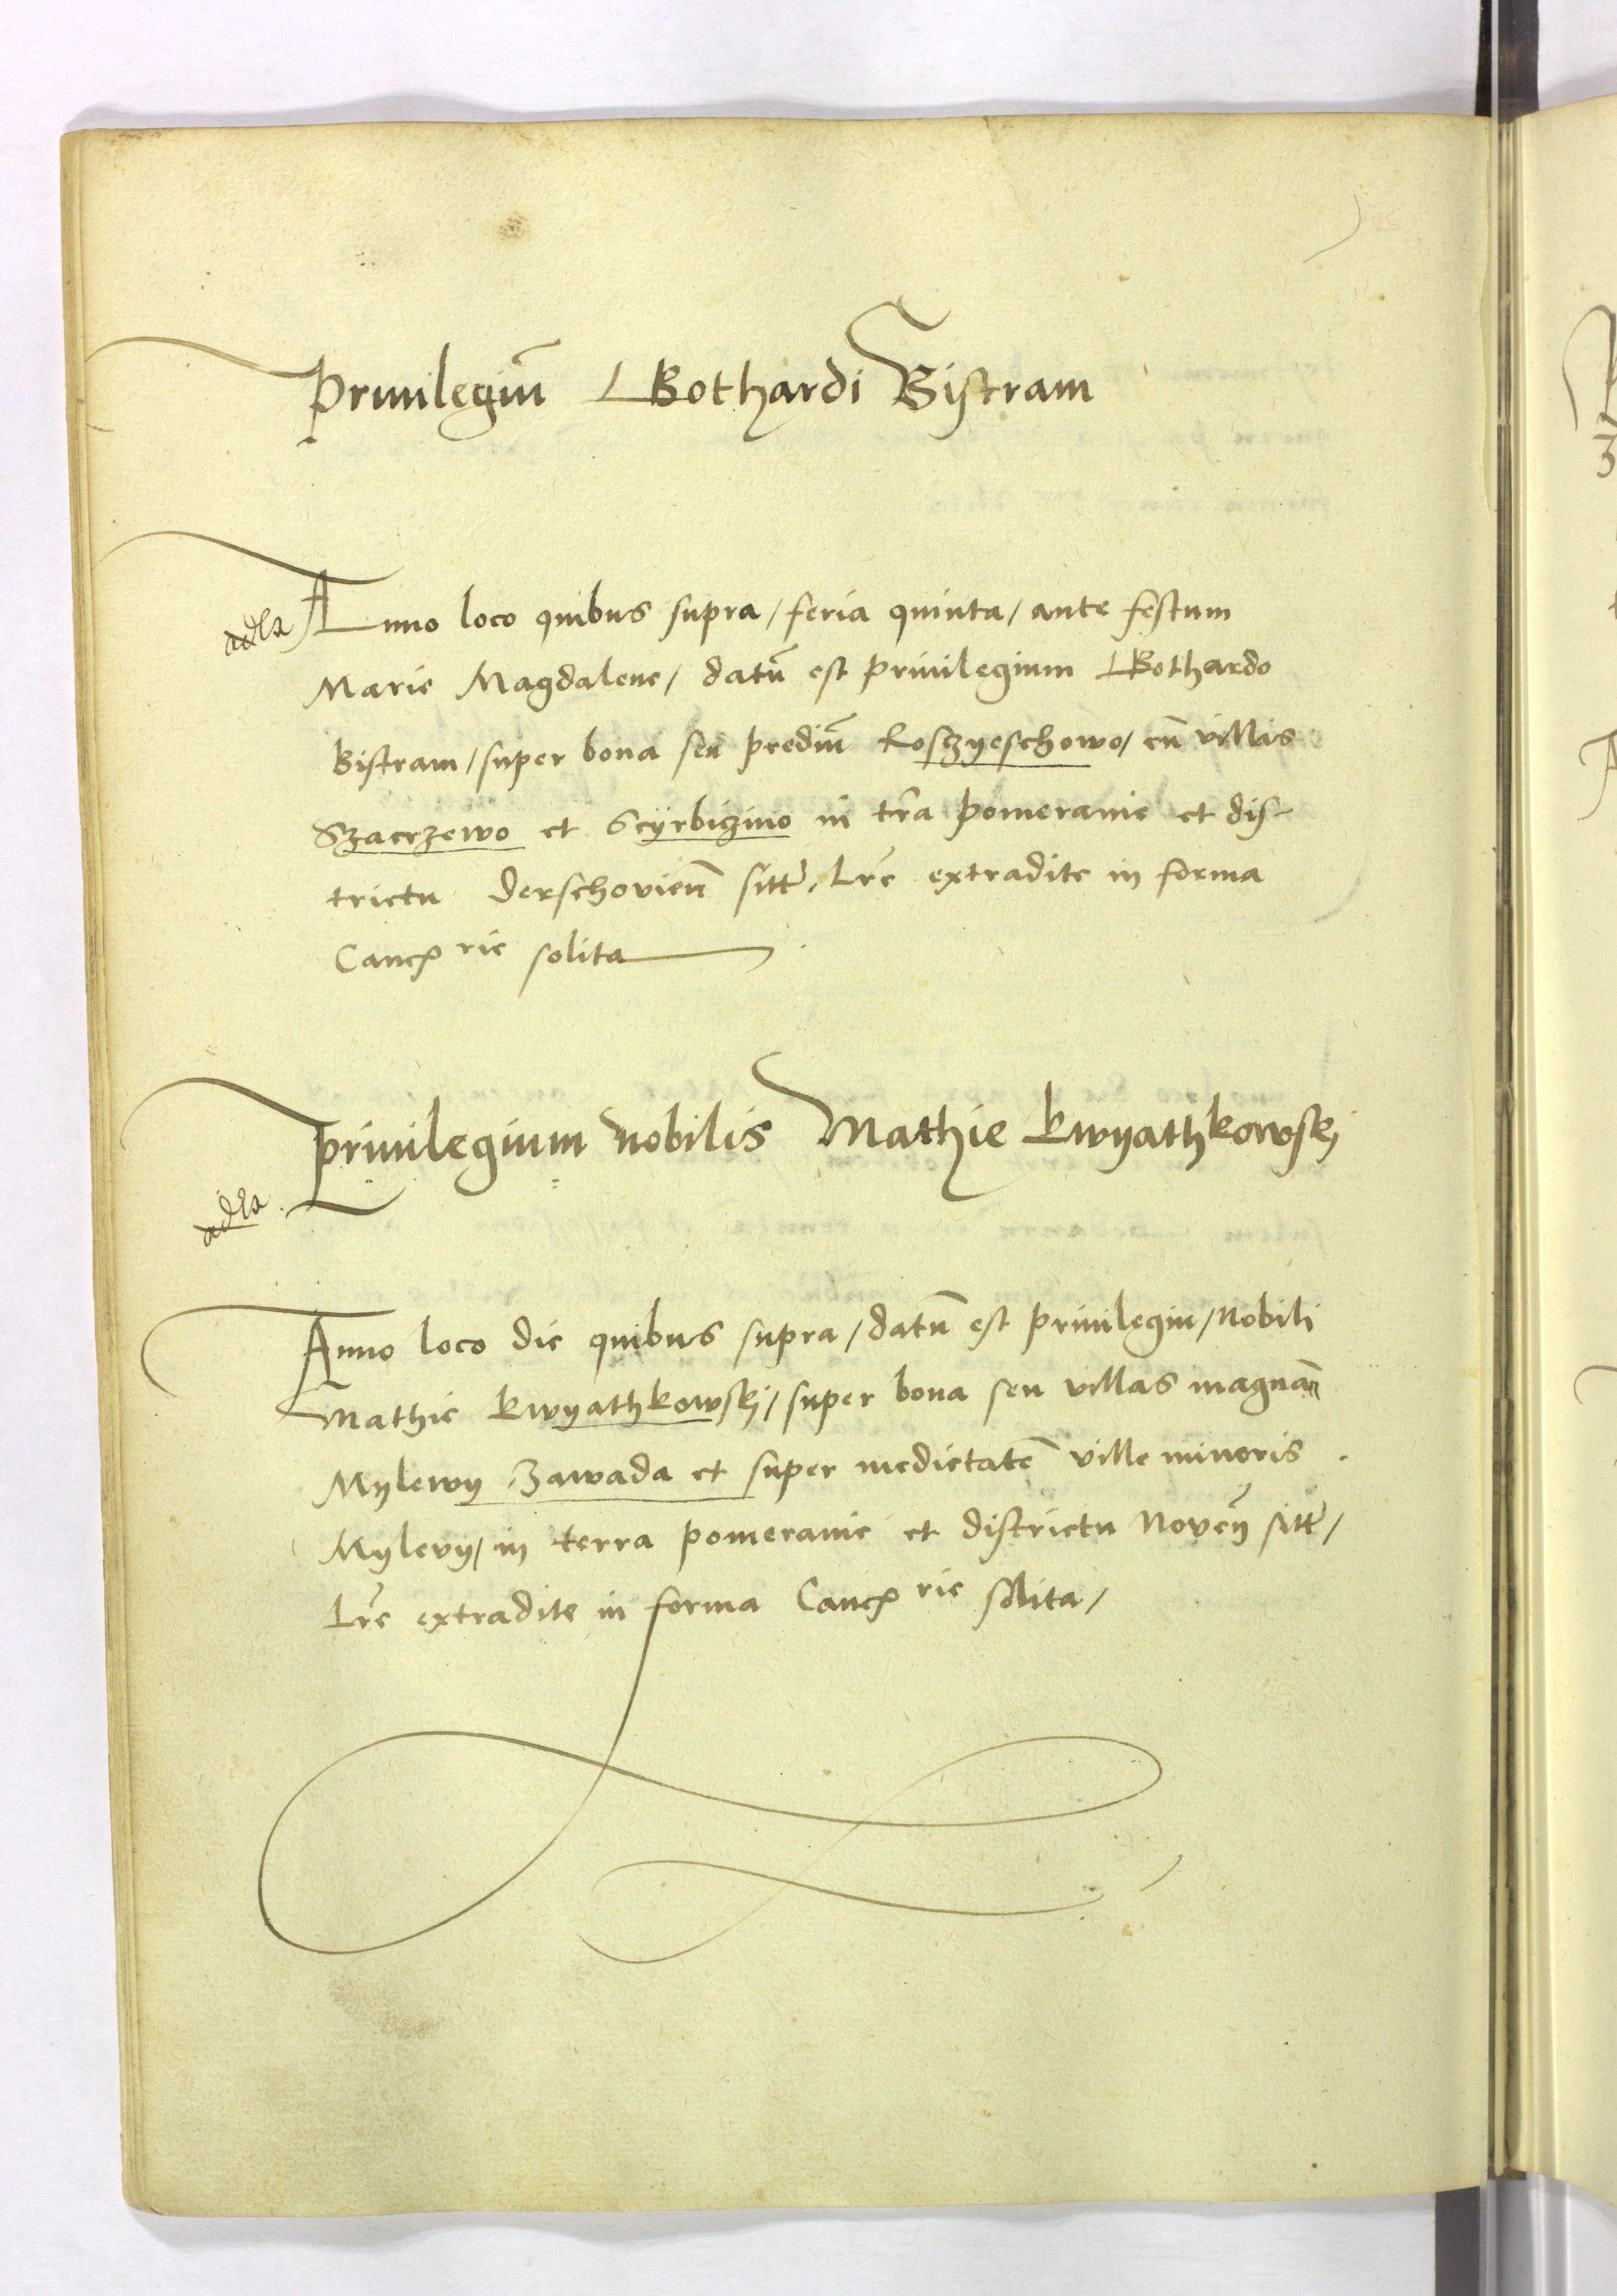 Privilegiū Gothardi Bistram
Anno loco quibus supra / feria quinta / ante festum
Marie Magdalene / datū est privilegium Gothardo
Bistram / super bona seu prediū Rosczyeschowo / cū villis
Szaerzewo et Scyrbiczino in tr̄a pomeranie et dis-
trictu derschovien̄ sitt. Lr̄e extradite in forma
Canc rie solita
Privilegium nobilis Mathie Kwyathkowskj
Anno loco die quibus supra / datū est privilegiu / Nobili
Mathie Kwyathkowskj / super bona seu villas magnā
Mylewy Zawada et super medietatē ville minoris
Mylevy / in terra pomeranie et districtu Noven̄ sitt /
Lr̄e extradite in forma Canc rie solita /